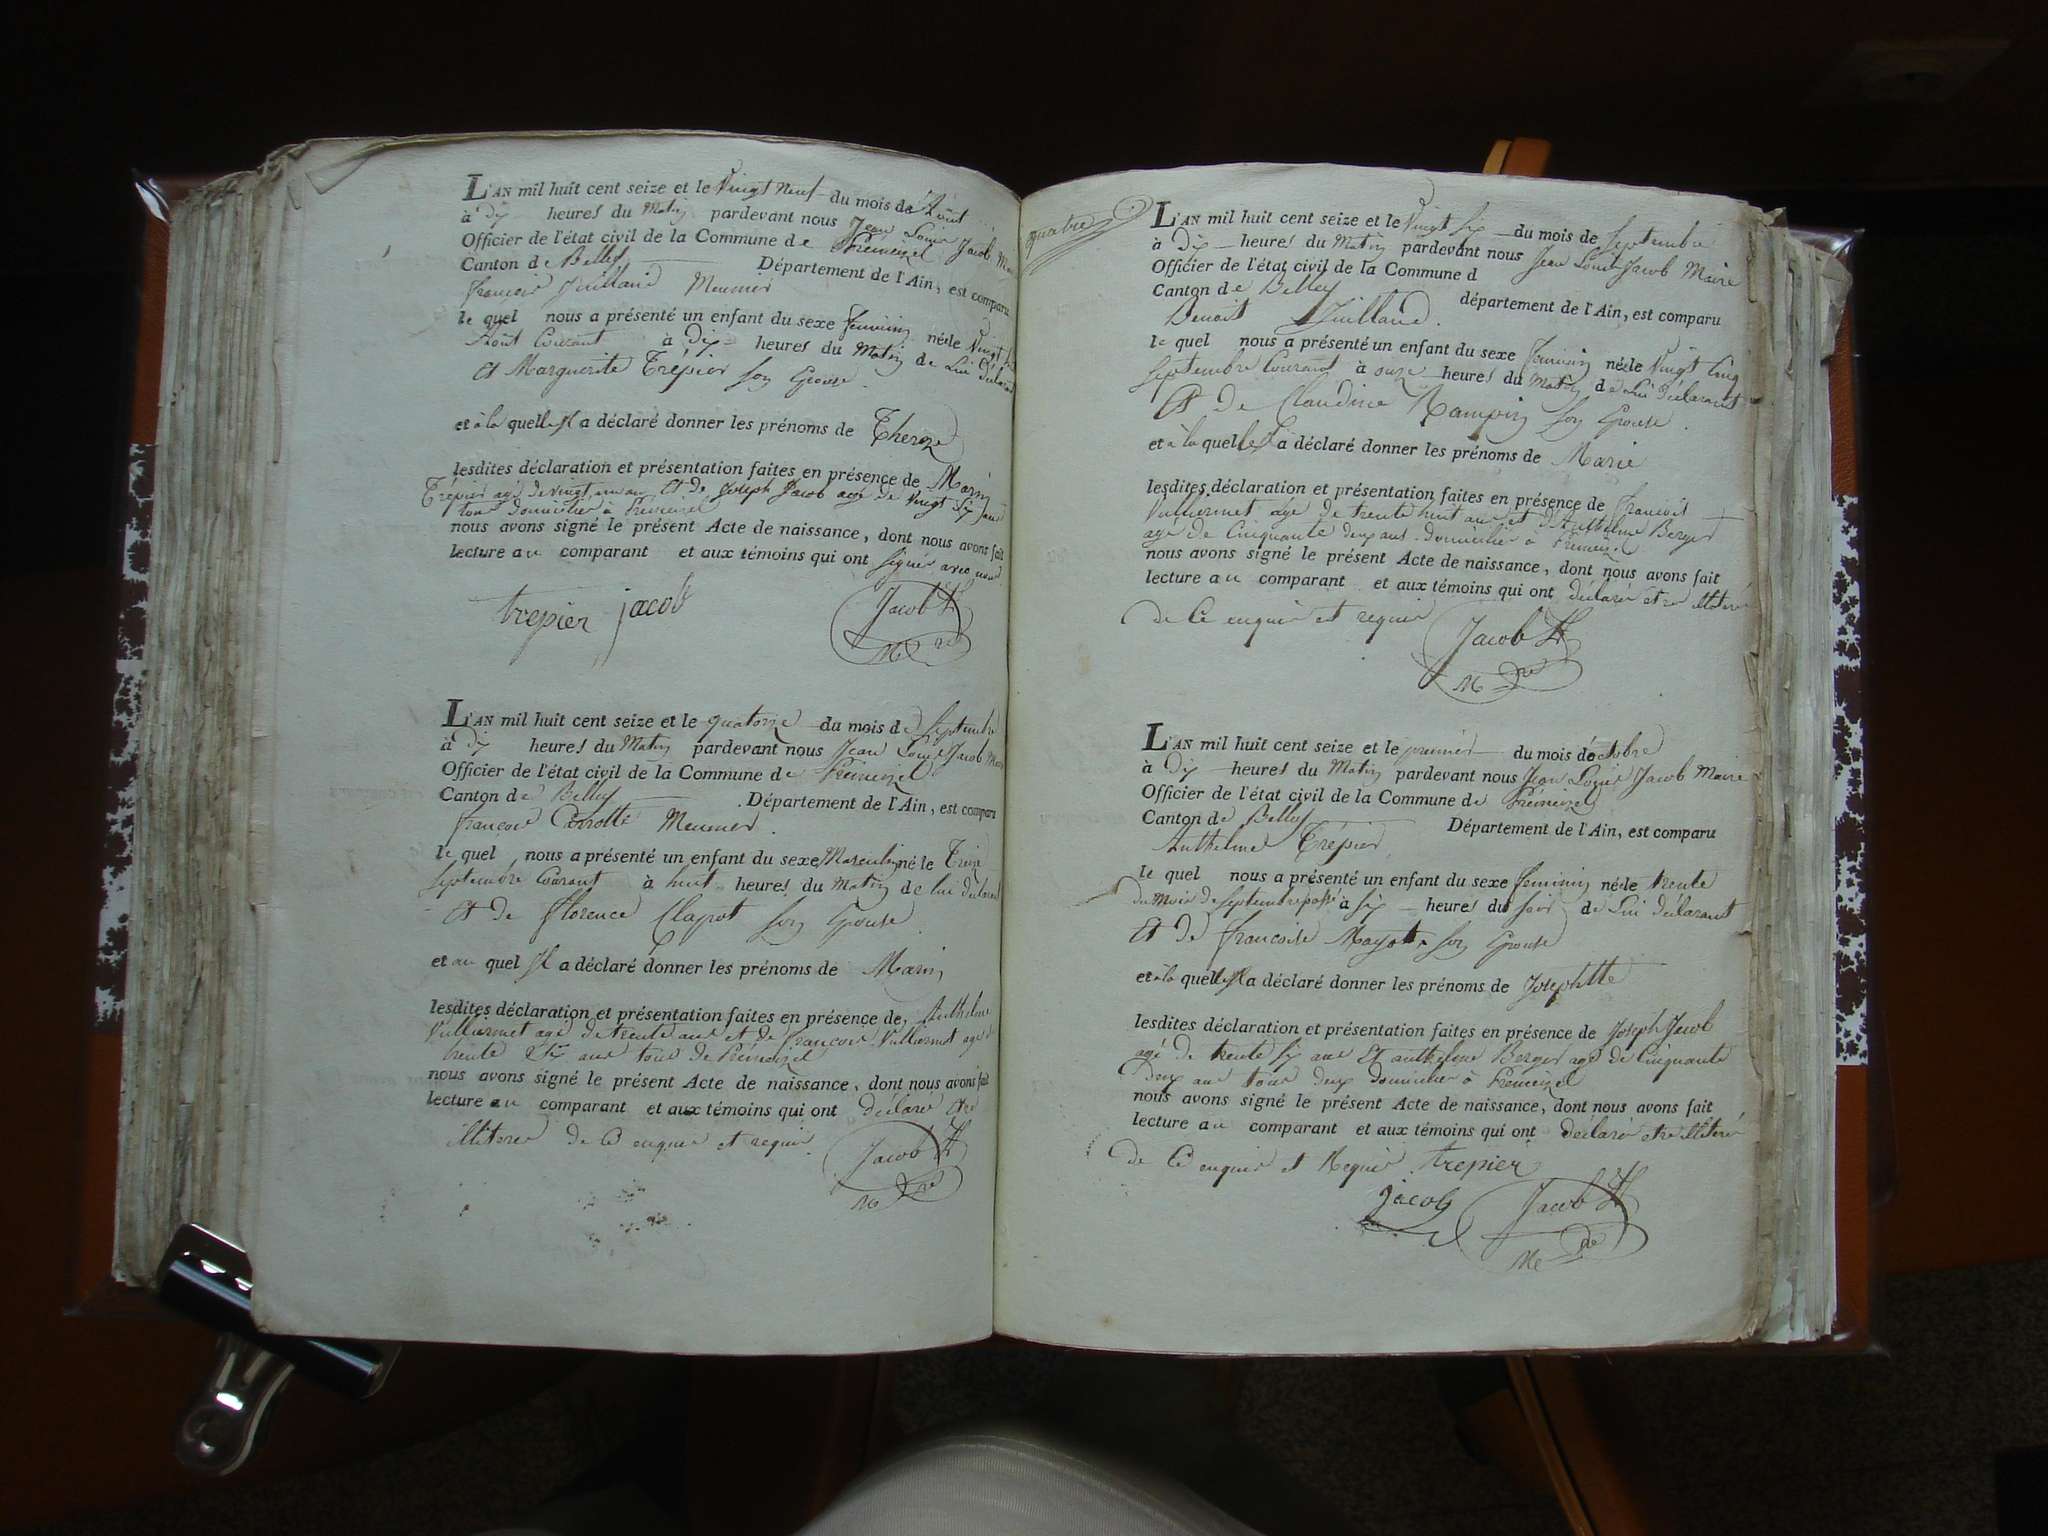 L'AN mil huit cent seize et le Vingt Neuf du mois de Août
à dix heures du Matin pardevant nous Jean Louis Jacob
Officier de l'état civil de la Commune de Prémeizel
Canton de Belley Département de l'Ain, est comparu
françois Juilland Meunier
le quel nous a présenté un enfant du sexe feminin née le Vingt
Août Courant à dix heures du Matin de Lui déclarant
et Marguerite Trépier son Epouse.
et à la quelle il a déclaré donner les prénoms de
lesdites déclaration et présentation faites en présence de Marin
Trépier agé de vingt un ans et de Joseph Jacob agé de vingt six ans
tous domiciliés à Prémeizel
nous avons signé le présent Acte de naissance, dont nous avons fait
lecture au comparant et aux témoins qui ont signés avec nous
trepier jacob Jacob
L'AN mil huit cent seize et le quatorze du mois de septembre
à dix heures du Matin pardevant nous Jean Louis Jacob
Officier de l'état civil de la Commune de Prémeizel
Canton de Belley Département de l'Ain, est comparu
françois Meunier.
le quel nous a présenté un enfant du sexe Masculin né le Treize
septembre Courant à huit heures du Matin de lui déclarant
et de florence Clapot son Epouse.
et au quel il a déclaré donner les prénoms de Marin
lesdites déclaration et présentation faites en présence de Anthelme
Vulliermet agé de trente ans et de françois Vulliermet agé de
trente six ans tous de Prémeizel
nous avons signé le présent Acte de naissance, dont nous avons fait
lecture au comparant et aux témoins qui ont déclaré etre
illiteres de ce enquis et requis.
Jacob
quatre
L'AN mil huit cent seize et le Vingt six du mois de septembre
à dix heures du Matin pardevant nous Jean Louis Jacob Maire
Officier de l'état civil de la Commune d
Canton de Belley département de l'Ain, est comparu
Benoit Juilland.
le quel nous a présenté un enfant du sexe feminin née le Vingt Cinq
septembre Courant à onze heures du Matin de Lui déclarant
et de Claudine son Epouse.
et à la quelle il a déclaré donner les prénoms de Marie
lesdites déclaration et présentation faites en présence de francois
Vulliermet agé de trente huit ans et d'Anthelme Berger
agé de Cinquante deux ans domiciliés à Prémeizel
nous avons signé le présent Acte de naissance, dont nous avons fait
lecture au comparant et aux témoins qui ont déclaré etre illiteré
de Ce enquis et requis
Jacob
L'AN mil huit cent seize et le premier du mois d'octobre
à dix heures du Matin pardevant nous Jean Louis Jacob Maire
Officier de l'état civil de la Commune de Prémeizel
Canton de Belley Département de l'Ain, est comparu
Anthelme Trépier
le quel nous a présenté un enfant du sexe feminin née le trente
du mois de septembre passé à six heures du soir de Lui déclarant
et de francoise Mayot son Epouse
et à la quelle il a déclaré donner les prénoms de Josephtte
lesdites déclaration et présentation faites en présence de Joseph Jacob
agé de trente six ans et anthelme Berger agé de Cinquante
deux ans tous deux domiciliés à Prémeizel
nous avons signé le présent Acte de naissance, dont nous avons fait
lecture au comparant et aux témoins qui ont déclaré etre illiteré
de Ce enquis et Requis trepier
jacob Jacob